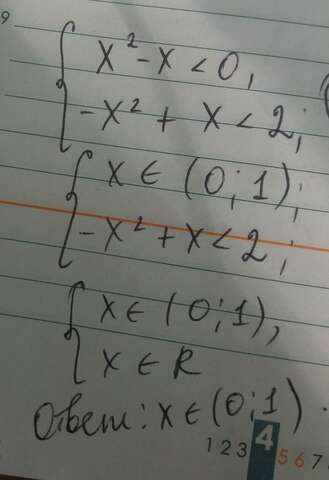 9
x² - x < 0,
-x² + x < 2;
x ∈ (0; 1);
-x² + x < 2;
x ∈ (0; 1),
x ∈ R
Ответ: x ∈ (0; 1).
1 2 3 4 5 6 7